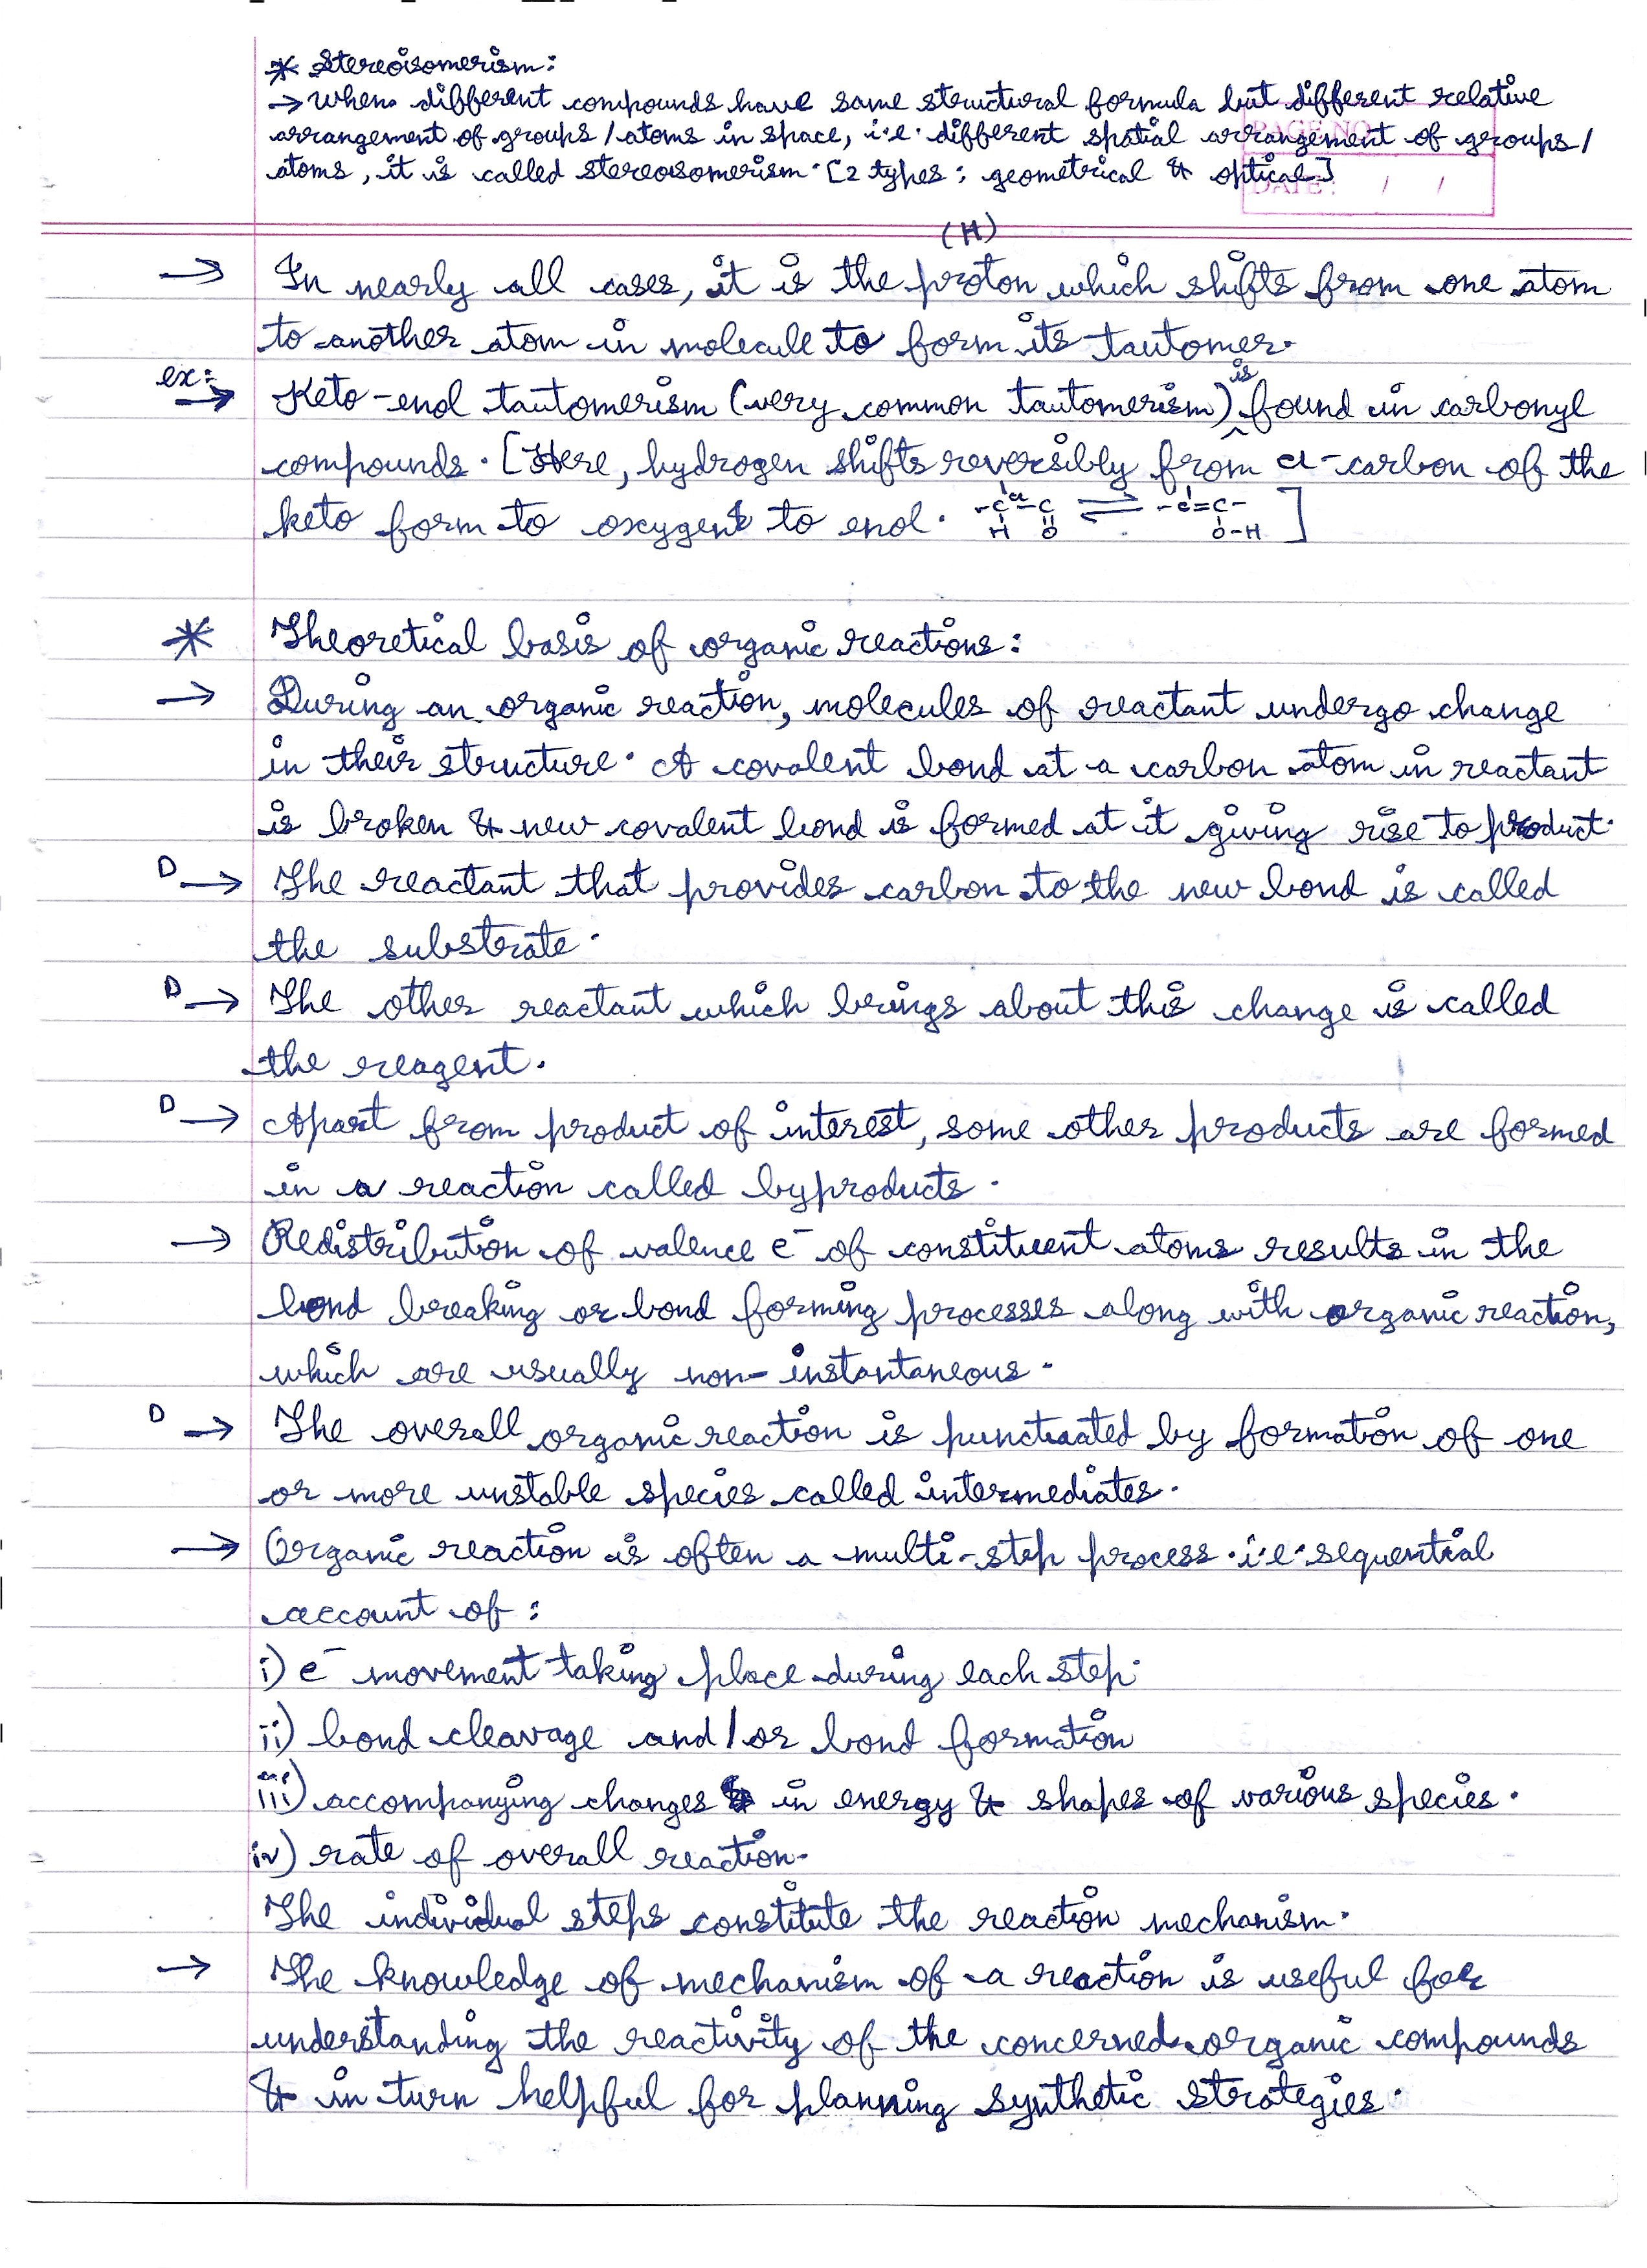 * Stereoisomerism:
→ When different compounds have same structural formula but different relative
arrangement of groups/atoms in space, i.e. different spatial arrangement of groups/
atoms, it is called stereoisomerism. [2 types: geometrical & optical]
PAGE NO
DATE: / /
(H)
→ In nearly all cases, it is the proton which shifts from one atom
to another atom in molecule to form its tautomer.
ex: → Keto-enol tautomerism (very common tautomerism) is found in carbonyl
compounds. [Here, hydrogen shifts reversibly from α-carbon of the
keto form to oxygen to enol. -C-C ⇌ -C=C- ]
H O O-H
* Theoretical basis of organic reactions:
→ During an organic reaction, molecules of reactant undergo change
in their structure. A covalent bond at a carbon atom in reactant
is broken & new covalent bond is formed at it giving rise to product.
D → The reactant that provides carbon to the new bond is called
the substrate.
D → The other reactant which brings about this change is called
the reagent.
D → Apart from product of interest, some other products are formed
in a reaction called byproducts.
→ Redistribution of valence e⁻ of constituent atoms results in the
bond breaking or bond forming processes along with organic reaction,
which are usually non-instantaneous.
D → The overall organic reaction is punctuated by formation of one
or more unstable species called intermediates.
→ Organic reaction is often a multi-step process. i.e. sequential
account of:
i) e⁻ movement taking place during each step.
ii) bond cleavage and/or bond formation
iii) accompanying changes in energy & shapes of various species.
iv) rate of overall reaction.
The individual steps constitute the reaction mechanism.
→ The knowledge of mechanism of a reaction is useful for
understanding the reactivity of the concerned organic compounds
& in turn helpful for planning synthetic strategies.